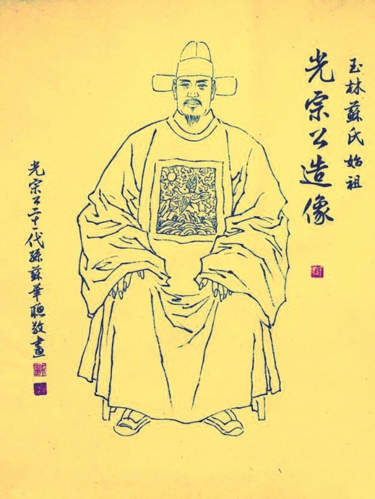 玉林蘇氏始祖
光宗公造像
光宗公二十一代孫蘇華聰敬畫